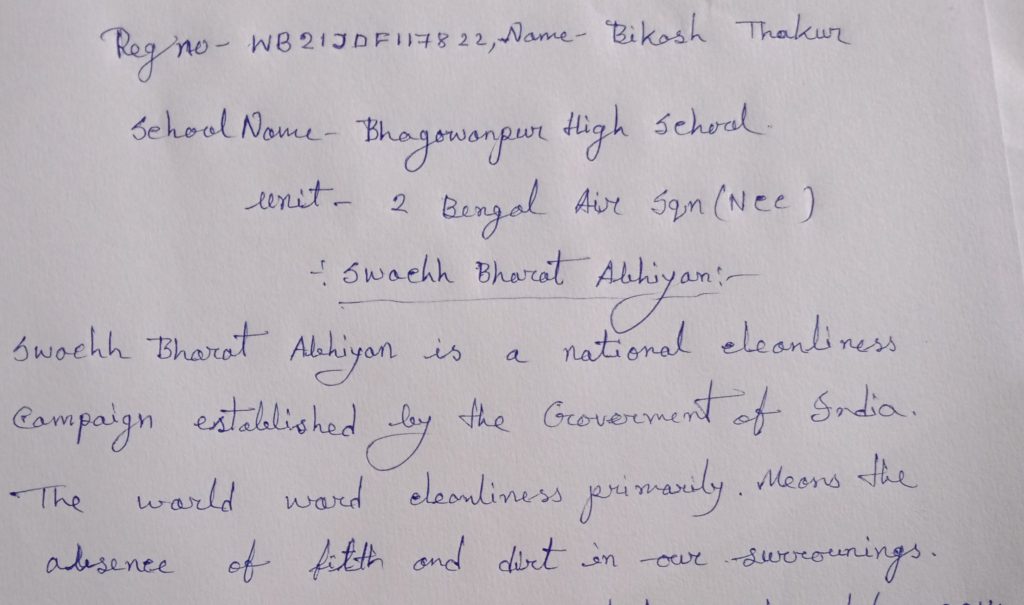 Reg no - WB21JDF117822, Name - Bikash Thakur
School Name - Bhagowanpur High School.
unit - 2 Bengal Air Sqn (Ncc)
-: Swachh Bharat Abhiyan :-
Swachh Bharat Abhiyan is a national cleanliness
Campaign established by the Goverment of India.
The world word cleanliness primarily. Means the
absence of filth and dirt in our surrounings.